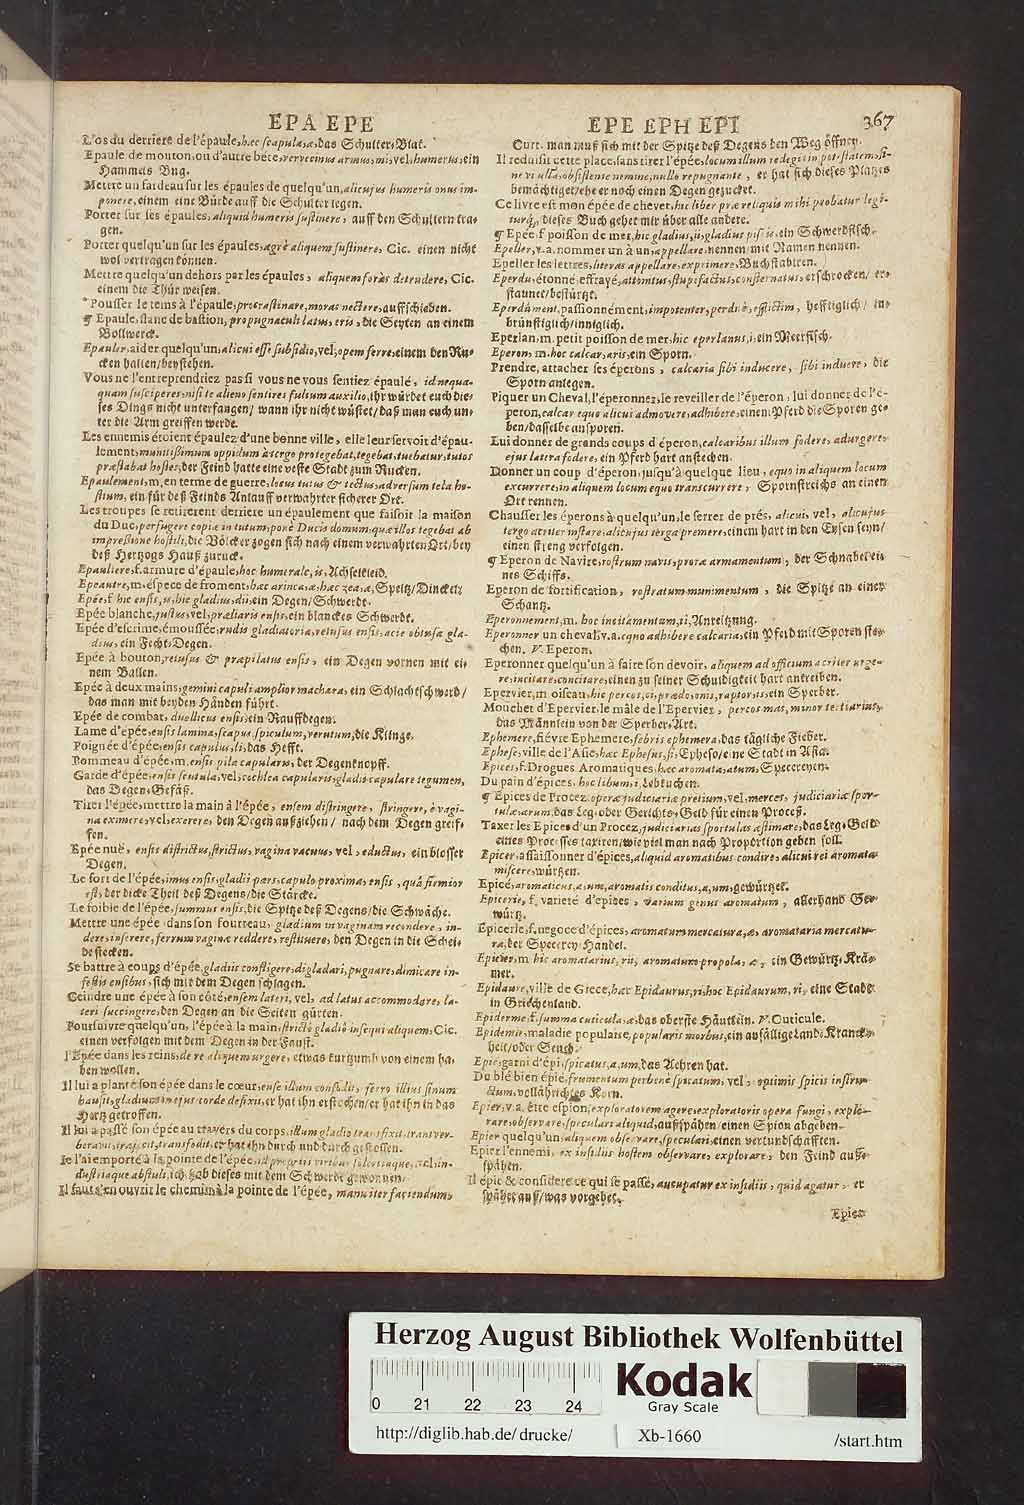 EPA EPE
L'os du derriere de l'épaule, hæc scapula, æ, das Schulter-Blat.
Epaule de mouton, ou d'autre bête, vervecinus armus, mi, vel, humerus, ein
Hammels Bug.
Mettre un fardeau sur les épaules de quelqu'un, alicujus humeris onus im-
ponere, einem eine Bürde auff die Schulter legen.
Porter sur les épaules, aliquid humeris sustinere, auff den Schultern tra-
gen.
Porter quelqu'un sur les épaules, ægrè aliquem sustinere, Cic. einen nicht
wol vertragen können.
Mettre quelqu'un dehors par les épaules, aliquem foràs detrudere, Cic.
einem die Thür weisen.
*Pousser le tems à l'épaule, procrastinare, moras nectere, auffschieben.
¶ Epaule, flanc de bastion, propugnaculi latus, eris, die Seyten an einem
Bollwerck.
Epauler, aider quelqu'un, alicui esse subsidio, vel, opem ferre, einem den Ru-
cken halten/beystehen.
Vous ne l'entreprendriez pas si vous ne vous sentiez épaulé, id nequa-
quam susciperes, nisi te alieno sentires fultum auxilio, ihr würdet euch die-
ses Dings nicht unterfangen/ wann ihr nicht wüstet/ daß man euch un-
ter die Arm greiffen werde.
Les ennemis étoient épaulez d'une bonne ville, elle leur servoit d'épau-
lement, munitissimum oppidum à tergo protegebat, tegebat, tuebatur, tutos
præstabat hostes, der Feind hatte eine veste Stadt zum Rucken.
Epaulement, m. en terme de guerre, locus tutus & tectus, adversum tela ho-
stium, ein für deß Feinds Anlauff verwahrter sicherer Ort.
Les troupes se retirerent derriere un épaulement que faisoit la maison
du Duc, perfugere copiæ in tutum, poné Ducis domum, quæ illos tegebat ab
impressione hostili, die Völcker zogen sich nach einem verwahrten Ort/bey
deß Hertzogs Hauß zuruck.
Epauliere, f. armure d'épaule, hoc humerale, is, Achselkleid.
Epeautre, m. éspece de froment, hæc arinca, æ, hæc zea, æ, Speltz/Dinckel.
Epée, f. hic ensis, is, hic gladius, dii, ein Degen/Schwerdt.
Epée blanche, justus, vel, præliaris ensis, ein blanckes Schwerdt.
Epée d'escrime, émoussée, rudis gladiatoria, retusus ensis, acie obtusa gla-
dius, ein Fecht-Degen.
Epée à bouton, retusus & præpilatus ensis, ein Degen vornen mit ei-
nem Ballen.
Epée à deux mains, gemini capuli amplior machæra, ein Schlachtschwerd/
das man mit beyden Händen führt.
Epée de combat, duellicus ensis, ein Rauffdegen.
Lame d'épée, ensis lamma, scapus, spiculum, verutum, die Klinge.
Poignée d'épée, ensis capulus, li, das Hefft.
Pommeau d'épée, m. ensis pila capularis, der Degenknopff.
Garde d'épée, ensis scutula, vel, cochlea capularis, gladii capulare tegumen,
das Degen-Gefäß.
Tirer l'épée, mettre la main à l'épée, ensem distringere, stringere, è vagi-
na eximere, vel, exerere, den Degen außziehen/ nach dem Degen greif-
fen.
Epée nuë, ensis districtus, strictus, vagina vacuus, vel, eductus, ein blosser
Degen.
Le fort de l'épée, imus ensis, gladii pars, capulo proxima, ensis, quâ firmior
est, der dicke Theil deß Degens/die Stärcke.
Le foible de l'épée, summus ensis, die Spitze deß Degens/die Schwäche.
Mettre une épée dans son fourreau, gladium in vaginam recondere, in-
dere, inserere, ferrum vagina reddere, restituere, den Degen in die Schei-
de stecken.
Se battre à coups d'épée, gladiis confligere, digladiari, pugnare, dimicare in-
festis ensibus, sich mit dem Degen schlagen.
Ceindre une épée à son côté, ensem lateri, vel, ad latus accommodare, la-
teri succingere, den Degen an die Seiten gürten.
Poursuivre quelqu'un, l'épée à la main, stricto gladio insequi aliquem, Cic.
einen verfolgen mit dem Degen in der Faust.
l'Epée dans les reins, de re aliquem urgere, etwas kurtzumb von einem ha-
ben wollen.
Il lui a planté son épée dans le cœur, ense illum confodit, ferro illius sinum
hausit, gladium in ejus corde defixit, er hat ihn erstochen/er hat ihn in das
Hertz getroffen.
Il lui a passé son épée au travers du corps, illum gladio transfixit, transver-
beravit, trajecit, transfodit, er hat ihn durch und durch gestossen.
Je l'ai emporté à la pointe de l'épée, id propriis viribus solertiaque, vel, in-
dustriaque abstuli, ich hab dieses mit dem Schwerdt gewonnen.
Il faut s'en ouvrir le chemin à la pointe de l'épée, manu iter faciendum,
EPE EPH EPI 367
Curt. man muß sich mit der Spitze deß Degens den Weg öffnen.
Il reduisit cette place, sans tirer l'épée, locum illum redegit in potestatem, si-
ne vi ulla, obsistente nemine, nullo repugnante, er hat sich dieses Platzes
bemächtiget/ehe er noch einen Degen gezucket.
Ce livre est mon épée de chevet, hic liber præ reliquis mihi probatur legi-
turq;, dieses Buch gehet mir über alle andere.
¶ Epée, f. poisson de mer, hic gladius, ii, gladius piscis, ein Schwerdfisch.
Epeller, v. a. nommer un à un, appellare, nennen, mit Namen nennen.
Epeller les lettres, literas appellare, exprimere, Buchstabiren.
Eperdu, étonné, effrayé, attonitus, stupefactus, consternatus, erschrocken/ er-
staunet/bestürtzt.
Eperdûment, passionnément, impotenter, perditè, efflictim, hefftiglich/ in-
brünstiglich/inniglich.
Eperlan, m. petit poisson de mer, hic eperlanus, i, ein Meerfisch.
Eperon, m. hoc calcar, aris, ein Sporn.
Prendre, attacher les éperons, calcaria sibi inducere, sibi induere, die
Sporn anlegen.
Piquer un Cheval, l'éperonner, le reveiller de l'éperon, lui donner de l'é-
peron, calcar equo alicui admovere, adhibere, einem Pferd die Sporen ge-
ben/dasselbe ansporen.
Lui donner de grands coups d'éperon, calcaribus illum fodere, adurgere,
ejus latera fodere, ein Pferd hart anstechen.
Donner un coup d'éperon, jusqu'à quelque lieu, equo in aliquem locum
excurrere, in aliquem locum equo transcurrere, Spornstreichs an einen
Ort rennen.
Chausser les éperons à quelqu'un, le serrer de prés, alicui, vel, alicujus
tergo acriter instare, alicujus terga premere, einem hart in den Eysen seyn/
einen streng verfolgen.
¶ Eperon de Navire, rostrum navis, proræ armamentum, der Schnabel ei-
nes Schiffs.
Eperon de fortification, rostratum munimentum, die Spitze an einer
Schantz.
Eperonnement, m. hoc incitamentum, ti, Anreitzung.
Eperonner un cheval, v. a. equo adhibere calcaria, ein Pferd mit Sporen ste-
chen. V. Eperon.
Eperonner quelqu'un à faire son devoir, aliquem ad officium acriter urge-
re, incitare, concitare, einen zu seiner Schuldigkeit hart antreiben.
Epervier, m. oiseau, hic percos, ci, prædo, onis, raptor, is, ein Sperber.
Mouchet d'Epervier, le mâle de l'Epervier, percos mas, minor tertiarius,
das Männlein von der Sperber-Art.
Ephemere, fiévre Ephemere, febris ephemera, das tägliche Fieber.
Ephese, ville de l'Asie, hæc Ephesus, si, Epheso/eine Stadt in Asia.
Epices, f. Drogues Aromatiques, hæc aromata, atum, Specereyen.
Du pain d'épices, hoc libum, i, Lebkuchen.
¶ Epices de Procez, operæ judiciariæ pretium, vel, merces, judiciariæ spor-
tulæ, arum, das Leg- oder Gerichts-Geld für einen Proceß.
Taxer les Epices d'un Procez, judiciarias sportulas æstimare, das Leg-Geld
eines Processes taxiren/wie viel man nach Proportion geben soll.
Epicer, assaisonner d'épices, aliquid aromatibus condire, alicui rei aromata
miscere, würtzen.
Epicé, aromaticus, a, um, aromatis conditus, a, um, gewürtzet.
Epicerie, f. varieté d'epices, varium genus aromatum, allerhand Ge-
würtz.
Epicerie, f. negoce d'épices, aromatum mercatura, æ, aromataria mercatu-
ra, der Specerey-Handel.
Epicier, m. hic aromatarius, rii, aromatum propola, æ, ein Gewürtz-Krä-
mer.
Epidaure, ville de Grece, hæc Epidaurus, ri, hoc Epidaurum, ri, eine Stadt
in Griechenland.
Epiderme, f. summa cuticula, æ, das oberste Häutlein. V. Cuticule.
Epidemie, maladie populaire, popularis morbus, ein anfällige Land-Kranck-
heit/oder Seuch.
Epié, garni d'épi, spicatus, a, um, das Aehren hat.
Du blé bien épié, frumentum perbenè spicatum, vel, optimis spicis instru-
ctum, vollährichtes Korn.
Epier, v. a. être espion, exploratorem agere, exploratoris opera fungi, explo-
rare, observare, speculari aliquid, außspähen/einen Spion abgeben.
Epier quelqu'un, aliquem observare, speculari, einen verkundschafften.
Epier l'ennemi, ex insidiis hostem observare, explorare, den Feind auß-
spähen.
Il épie & considere ce qui se passe, aucupatur ex insidiis, quid agatur, er
spähet auß/was vorgehet.
Epies
Herzog August Bibliothek Wolfenbüttel
Kodak
Gray Scale
0 21 22 23 24
http://diglib.hab.de/drucke/ Xb-1660 /start.htm